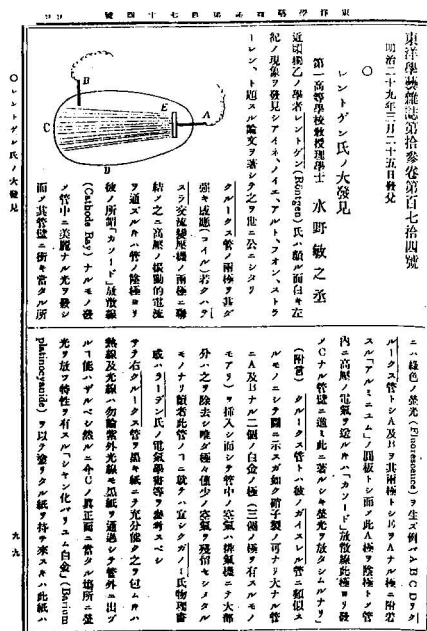 東洋學藝雜誌第百七十四號
東洋學藝雜誌第拾參卷第百七拾四號
明治二十九年三月二十五日發兌
○
レントゲン氏ノ大發見
第一高等學校教授理學士 水野敏之丞
近頃獨乙ノ學者レントゲン(Röntgen)氏ハ頗ル面白キ左
記ノ現象ヲ發見シアイネ、ノイエ、アルト、フオン、ストラ
ーレン、ト題スル論文ヲ著シテ之ヲ世ニ公ニシタリ
クルークス管ノ兩極ヲ其ダ
強キ感應(コイル)若クハテ
スラ交流變壓機ノ兩極ニ聯
結シ之ニ高壓ノ振動的電流
ヲ通ズルハ管ノ陰極ヨリ
彼ノ所謂「カソード」放散線
(Cathode Ray)ナルモノ發
シ管中ニ美麗ナル光ヲ發シ
而シテ其管壁ニ衝キ當タル所
A
B
C
D
E
ニハ綠色ノ螢光(Fluorescence)ヲ生ズ例ヘバABCDヲク
ルークス管トシA及Bヲ其兩極トシEヲAナル極ニ附着
スル「アルミニユム」ノ圓板トシ而シテ此A極ヲ陰極トシ管
内ニ高壓ノ電氣ヲ送ルハ「カソード」放散線此極ヨリ發
シCナル管壁ニ達シ此ニ著ルシキ螢光ヲ放タシムルナリ
(附言) クルークス管トハ彼ノガイスレル管ニ類似ス
ルモノニシテ圖ニ示スガ如ク硝子製ノ可ナリ大ナル管
ニA及Bナル二個ノ白金ノ極(三個ノ極ヲ有スルモノ
モアリ)ヲ挿入シ而シテ管中ノ空氣ハ排氣機ニテ大部
分ハ之ヲ除去シ唯ダ極々僅少ノ空氣ヲ殘留セシメタル
モノナリ讀者此管ノコニ就テハ宜シクガノー氏物理書
或ハラーデン氏ノ電氣學書等ヲ參考スベシ
サテ右クルークス管ヲ黑キ紙ニテ充分能ク之ヲ包ムルハ
熱線及光線ハ勿論紫外光線モ黑紙ヲ通過シテ管外ニ出ヅ
ルコ能ハザルベシ然ルニ今Cノ眞正面ニ當タル場所ニ螢
光ヲ放ツ特性ヲ有スル「シヤン化バリユム白金」(Barium
platinocyanide)ヲ以テ塗リタル紙ヲ持チ來スルハ此紙ハ
○レントゲン氏ノ大發見
九九